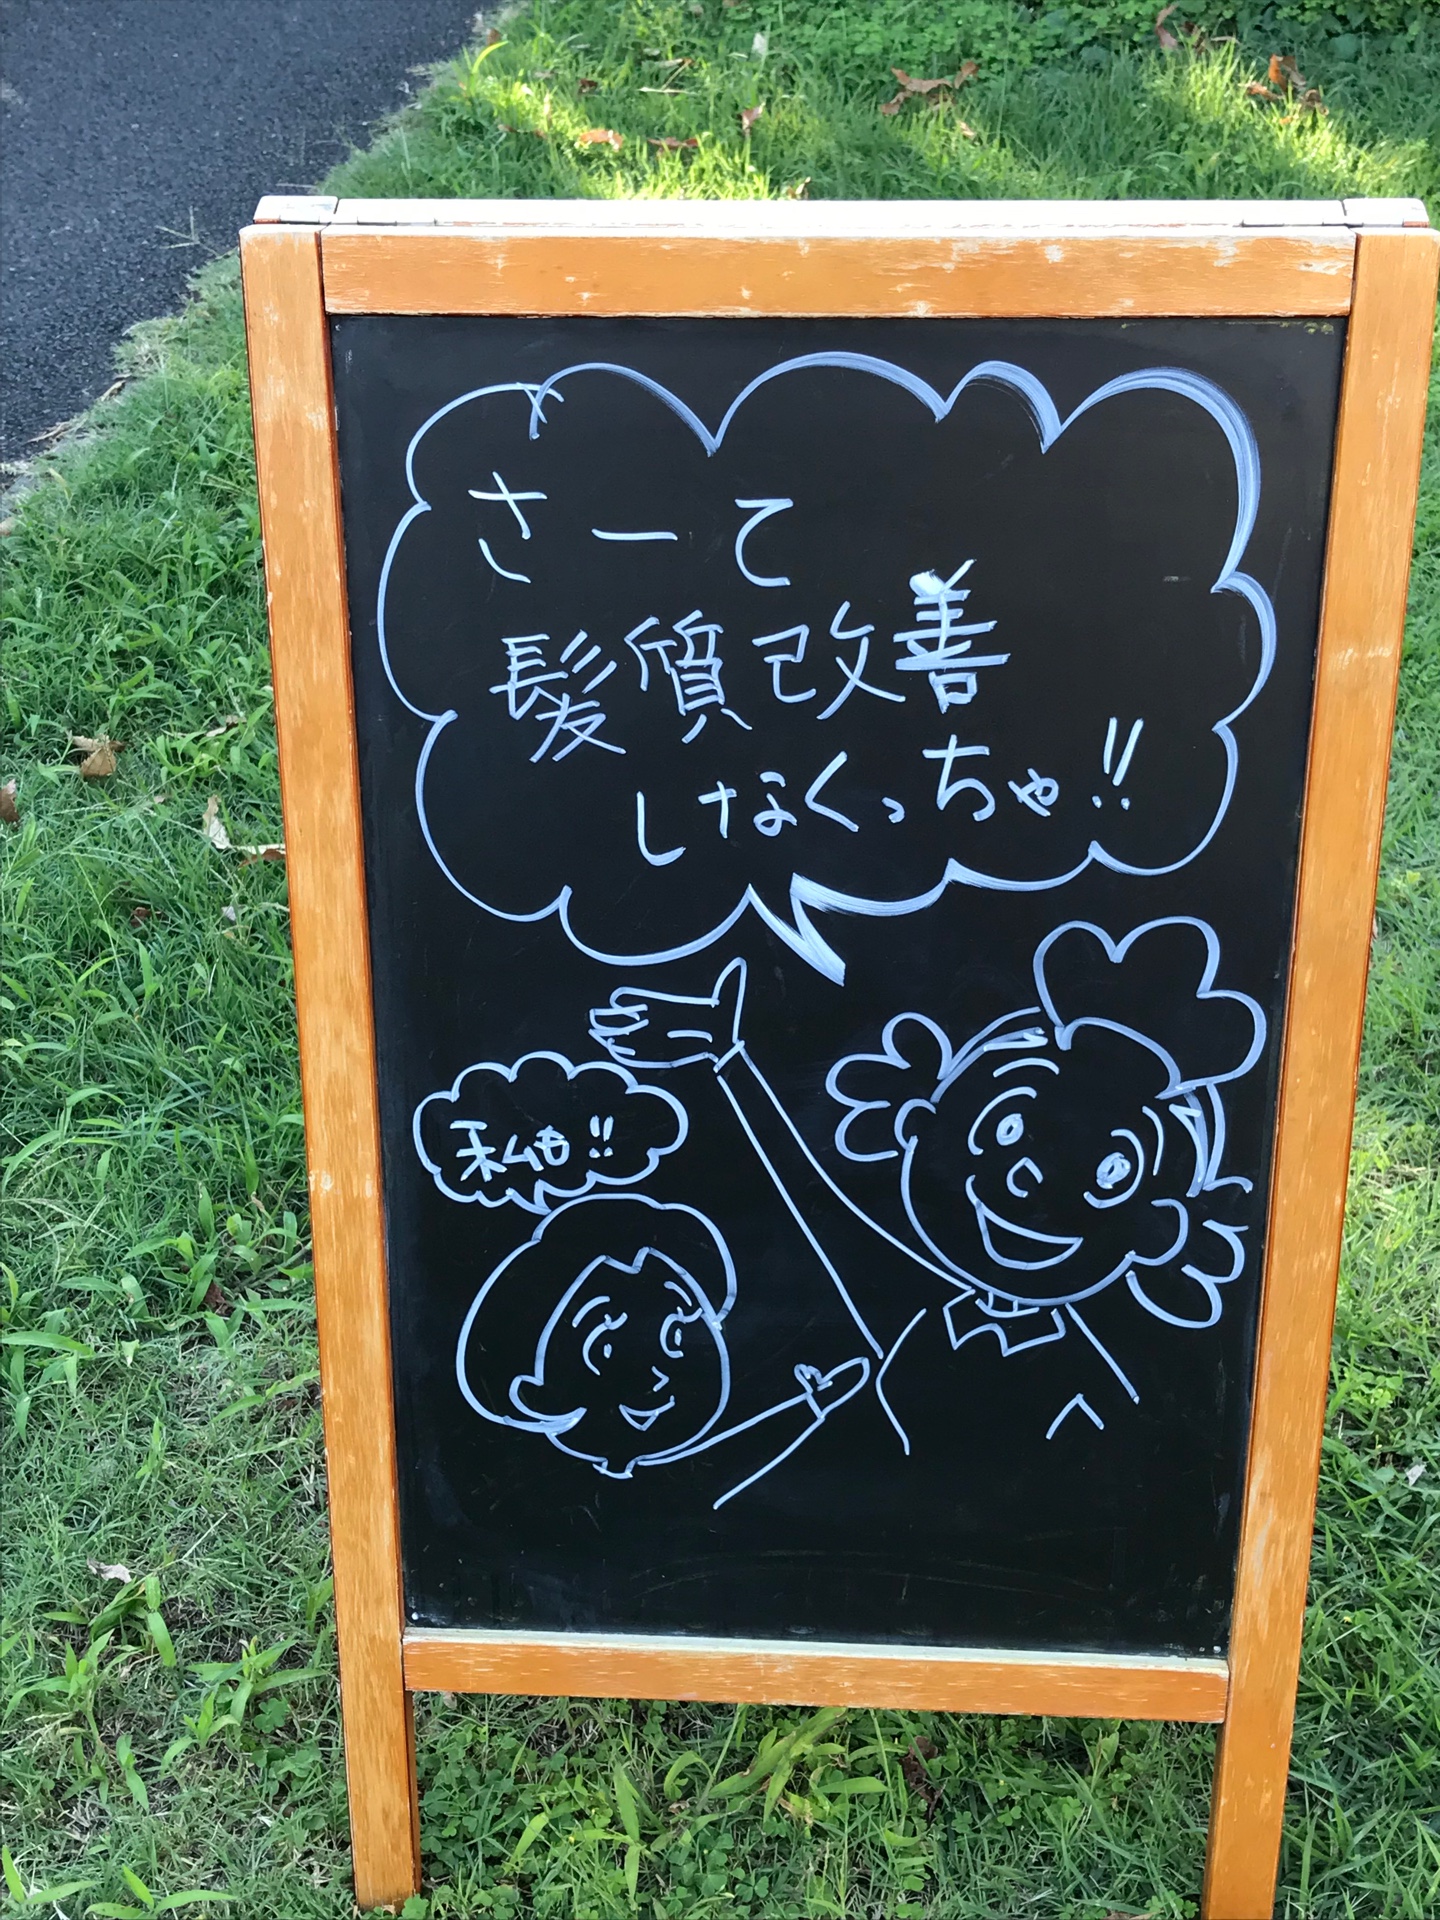 さーて
髪質改善
しなくっちゃ!!
私も!!